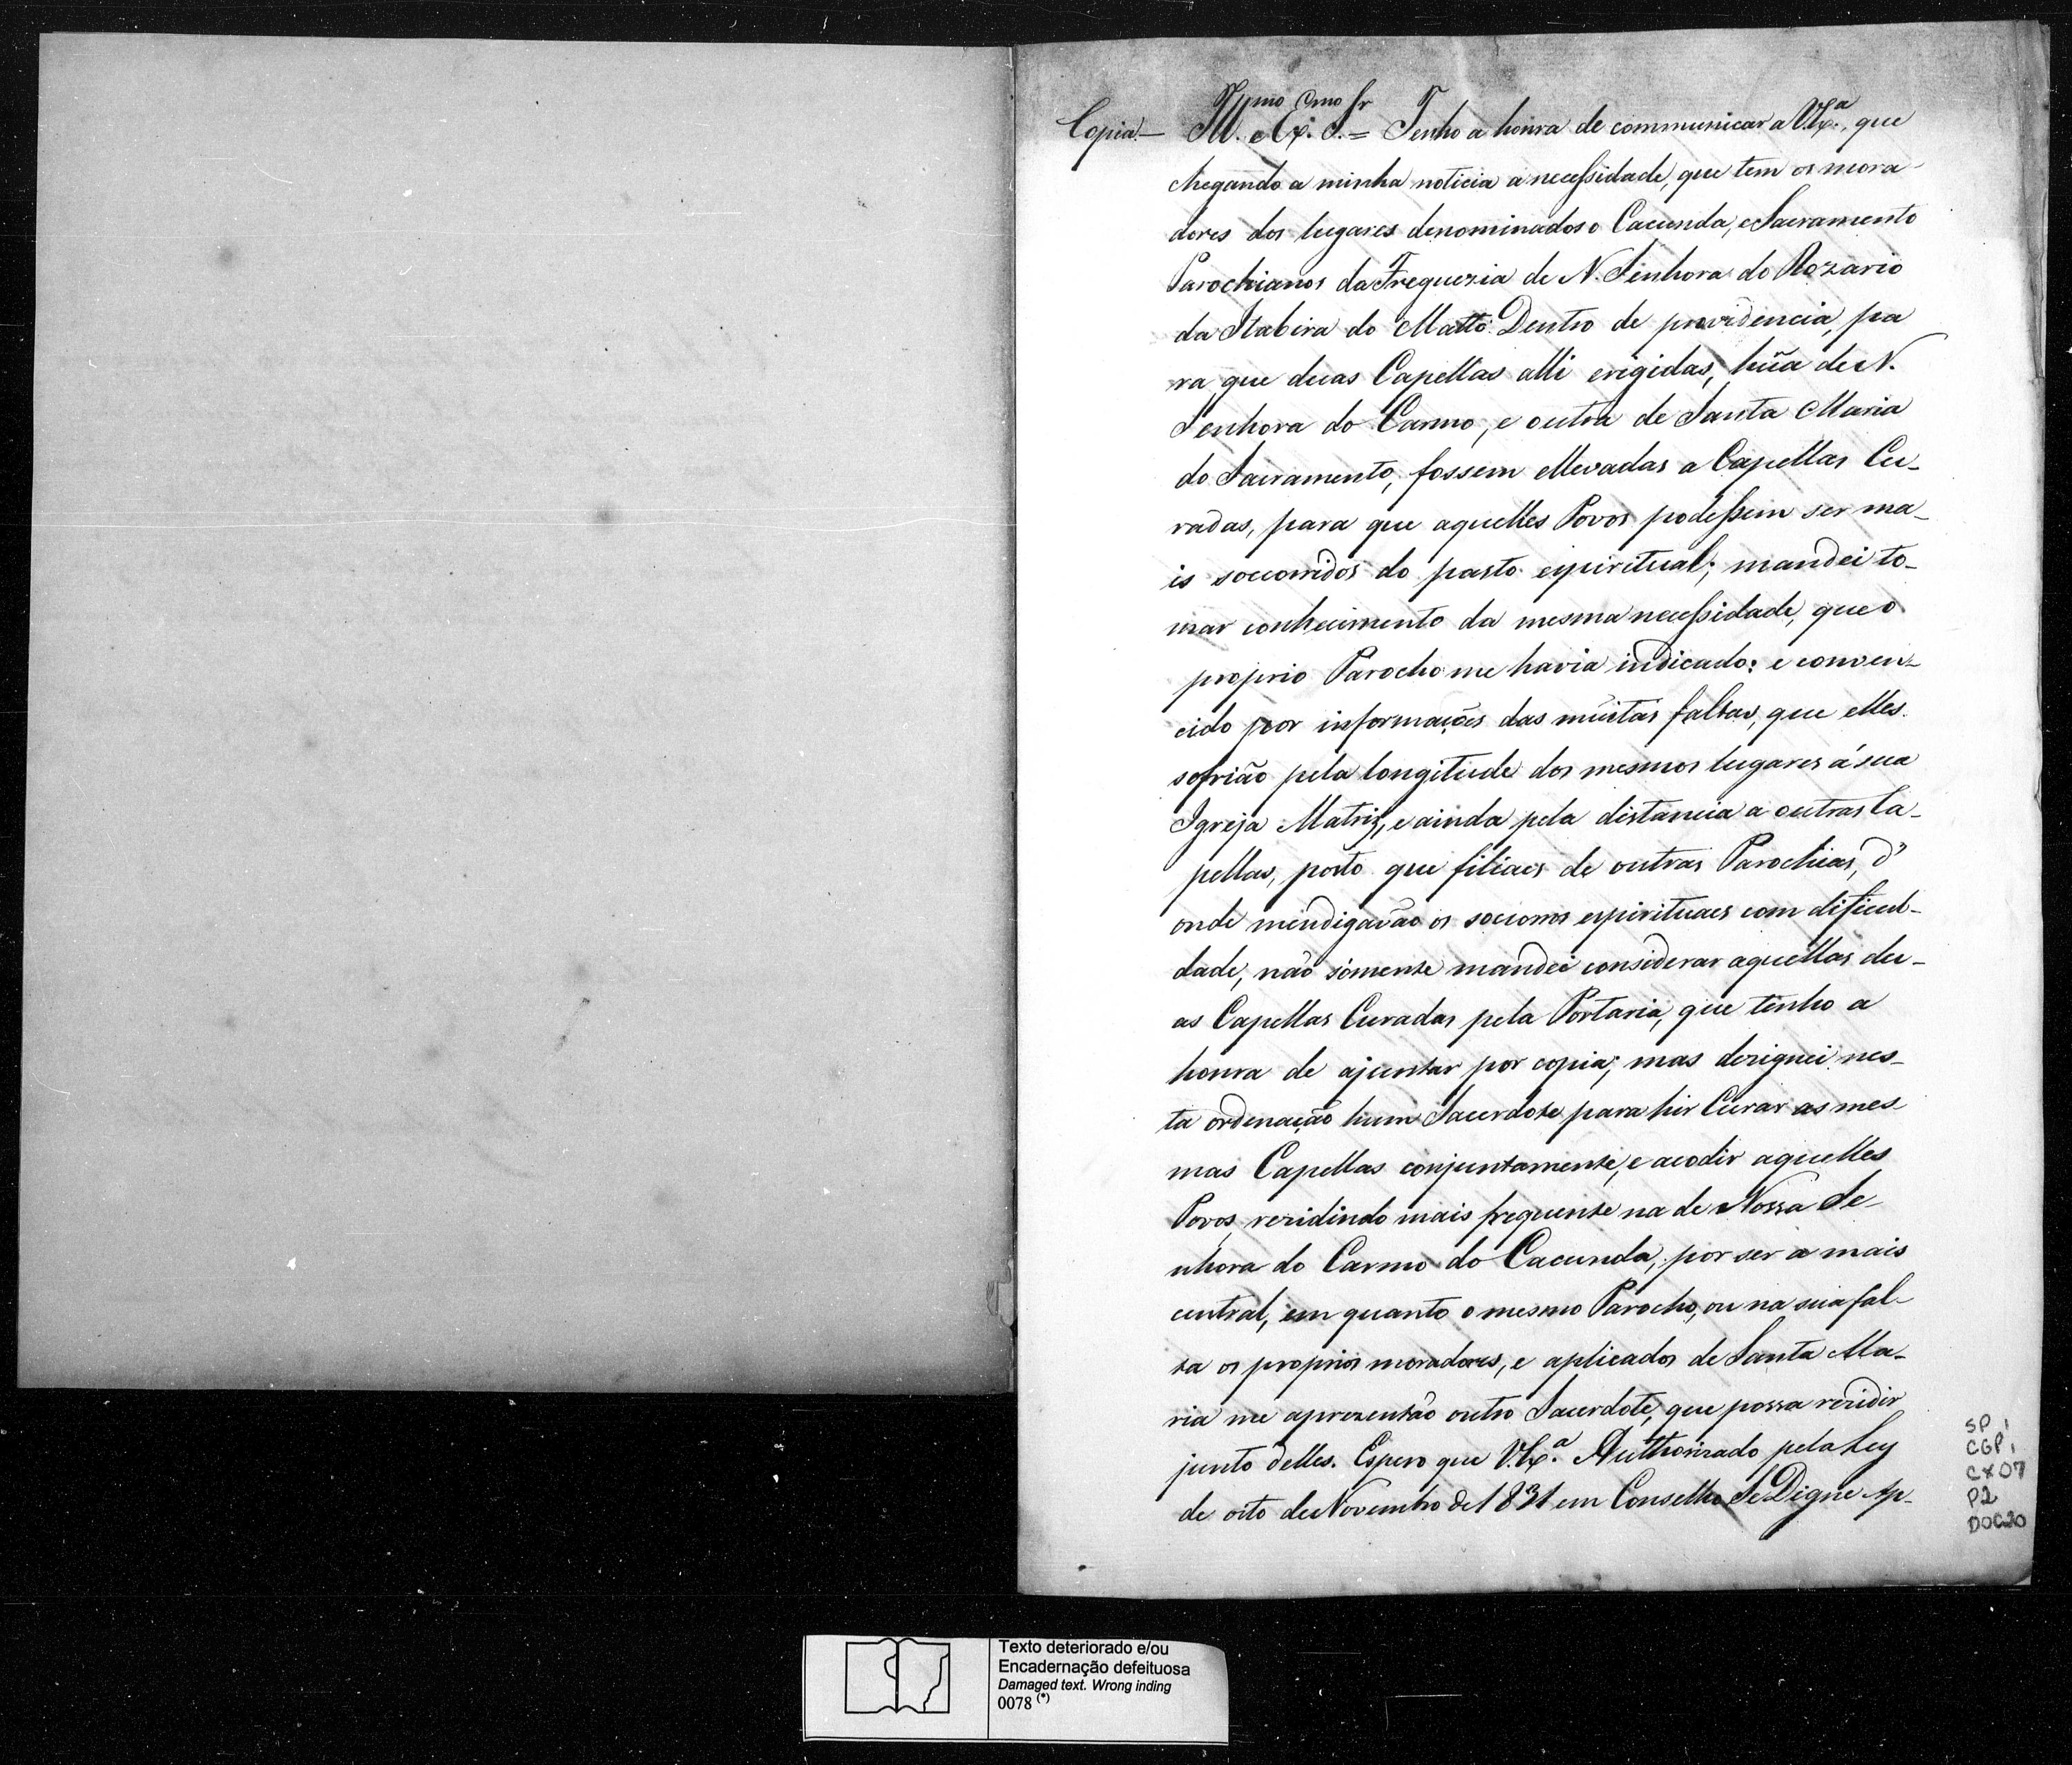 Copia — Ill.mo e Ex.mo Sr. = Tenho a honra de communicar a V. Ex.a, que
chegando a minha noticia a necessidade, que tem os mora-
dores dos lugares denominados o Cacunda, e Sacramento
Parochianos da Freguezia de N. Senhora do Rozario
da Itabira do Matto Dentro de providencia, pa
ra que duas Capellas alli erigidas, hũa de N.
Senhora do Carmo, e outra de Santa Maria
do Sacramento, fossem ellevadas a Capellas Cu-
radas, para que aquelles Povos podessem ser ma-
is soccorridos do pasto espiritual; mandei to-
mar conhecimento da mesma necessidade, que o
proprio Parocho me havia indicado: e conven-
cido por informações das muitas faltas, que elles
sofrião pela longitude dos mesmos lugares á sua
Igreja Matriz, e ainda pela distancia a outras Ca-
pellas, posto que filiaes de outras Parochias, d'
onde mendigavão os soccorros espirituaes com dificul-
dade, não sómente mandei considerar aquellas du-
as Capellas Curadas pela Portaria, que tenho a
honra de ajuntar por copia; mas dezignei nes-
ta ordenação hum Sacerdote para hir Curar as mes-
mas Capellas conjuntamente, e acodir aquelles
Povos, rezidindo mais frequente na de Nossa Se-
nhora do Carmo do Cacunda, por ser a mais
central, em quanto o mesmo Parocho, ou na sua fal-
ta os proprios moradores, e aplicados de Santa Ma-
ria me aprezentão outro Sacerdote, que possa rezidir
junto delles. Espero que V. Ex.a Authorizado pela Ley
de oito de Novembro de 1831 em Conselho Se Digne Ap-
SP 1
CGP 1
CX 07
P2
DOC 20
Texto deteriorado e/ou
Encadernação defeituosa
Damaged text. Wrong inding
0078 (*)